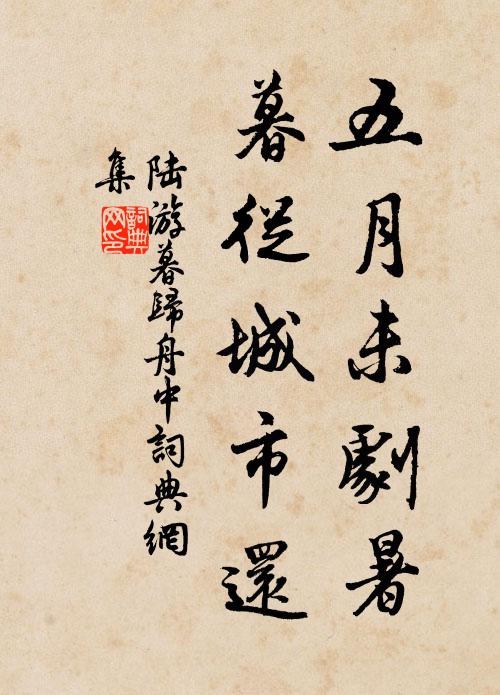 五月未劇暑
暮從城市還
陸游暮歸舟中詞典網
集
詞典
网印